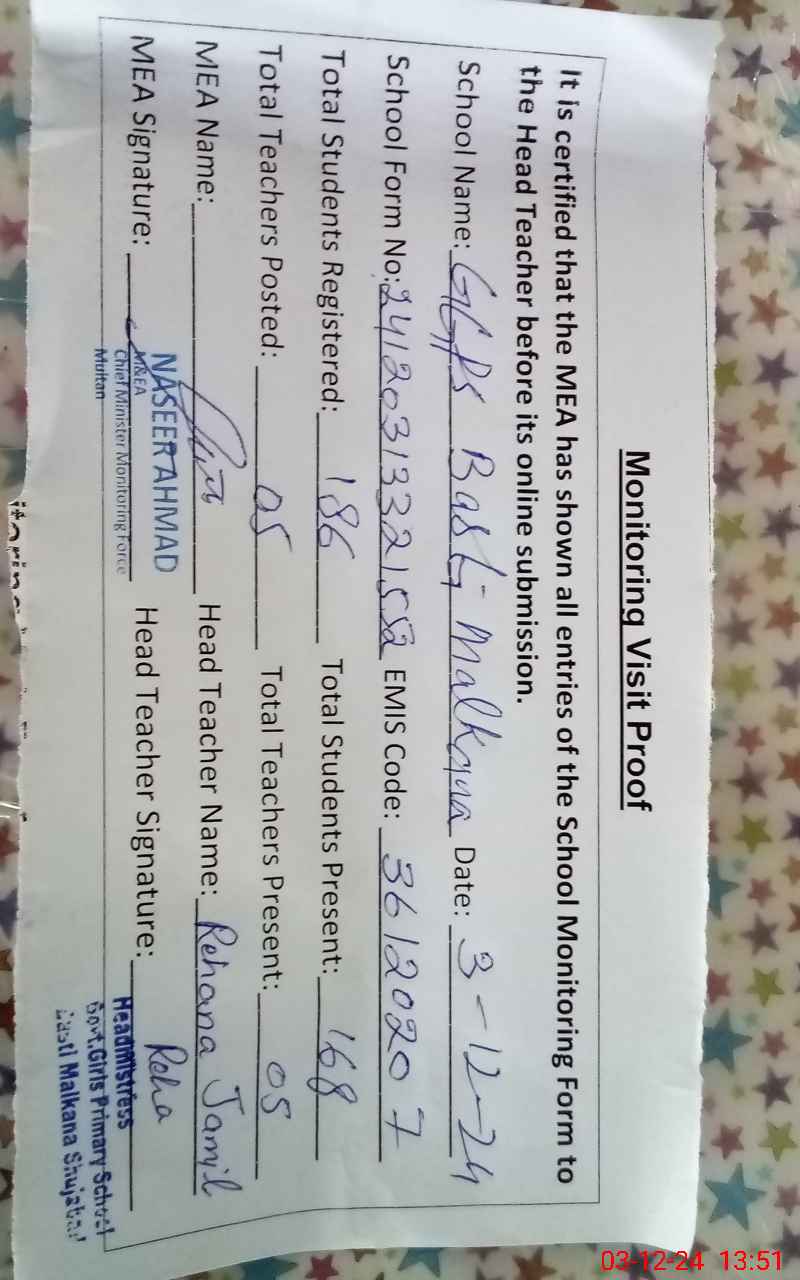 Monitoring Visit Proof
It is certified that the MEA has shown all entries of the School Monitoring Form to
the Head Teacher before its online submission.
School Name: GGPS Basti Malkana Date: 3-12-24
School Form No: 241203133 21552 EMIS Code: 36120207
Total Students Registered: 186 Total Students Present: 168
Total Teachers Posted: 05 Total Teachers Present: 05
MEA Name: Head Teacher Name: Rehana Jamil
NASEER AHMAD
MEA Signature: Head Teacher Signature: Reha
M&EA
Chief Minister Monitoring Force
Multan
Headmistress
Govt.Girls Primary School
Basti Malkana Shujabad
03-12-24 13:51